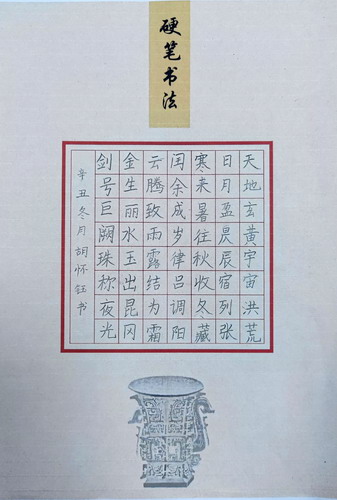 硬笔书法
天地玄黄宇宙洪荒
日月盈昃辰宿列张
寒来暑往秋收冬藏
闰余成岁律吕调阳
云腾致雨露结为霜
金生丽水玉出昆冈
剑号巨阙珠称夜光
辛丑冬月胡怀钰书